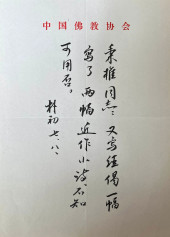 中国佛教协会
秉椎同志：又写经偈一幅
写了两幅近作小诗不知
可用否，
朴初 七、八、